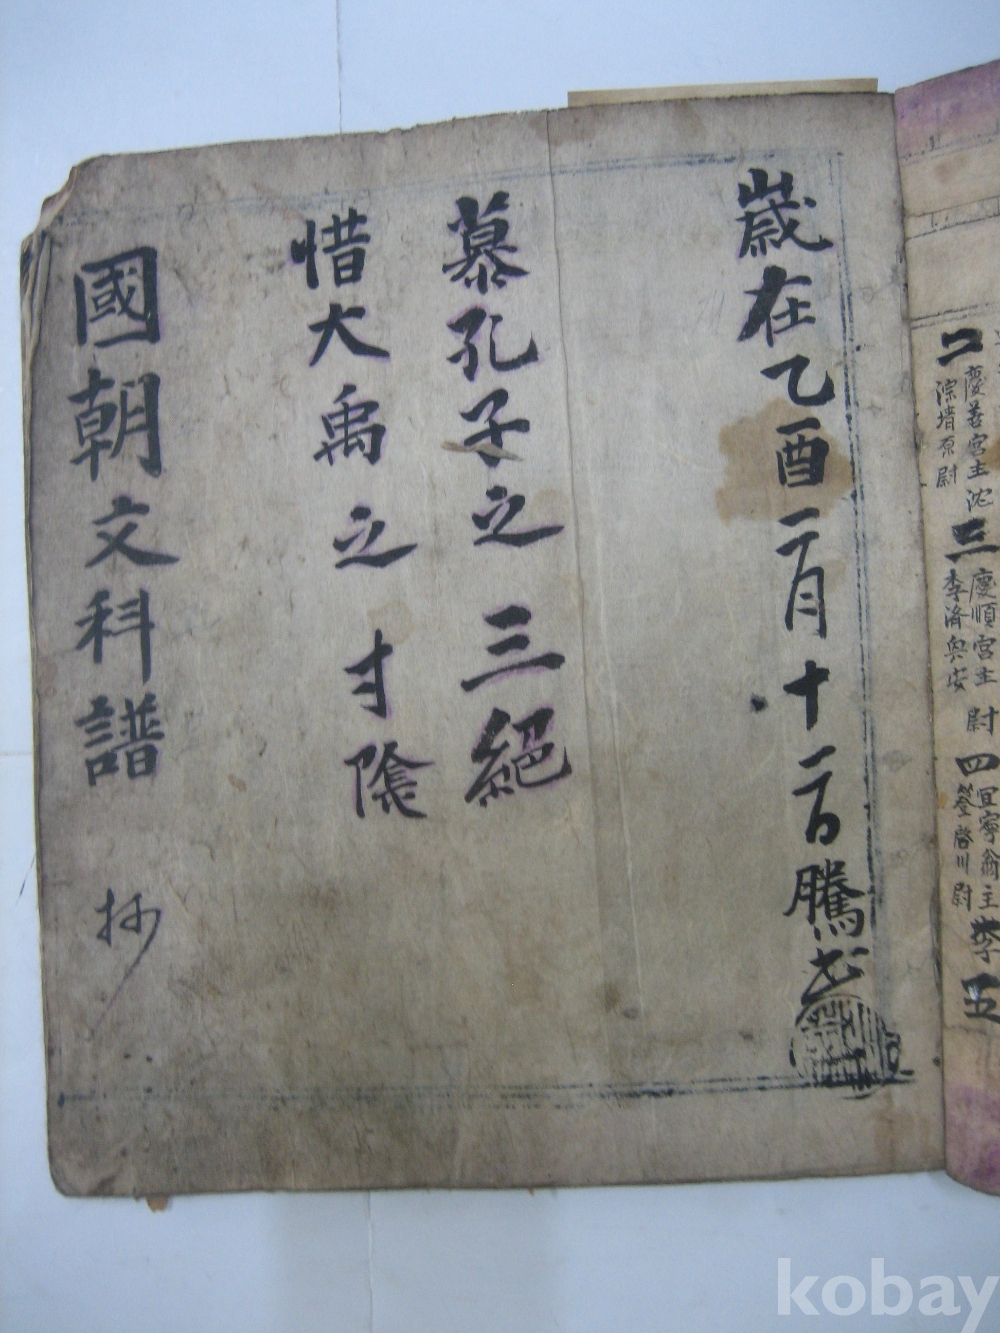 歲在乙酉二月十二日騰書
慕孔子之三絕
惜大禹之寸陰
國朝文科譜 抄
二 慶善宮主沈
淙 尉
三 慶順宮主
李濟 尉
四 宜寧翁主
啓川尉
李
五
kobay